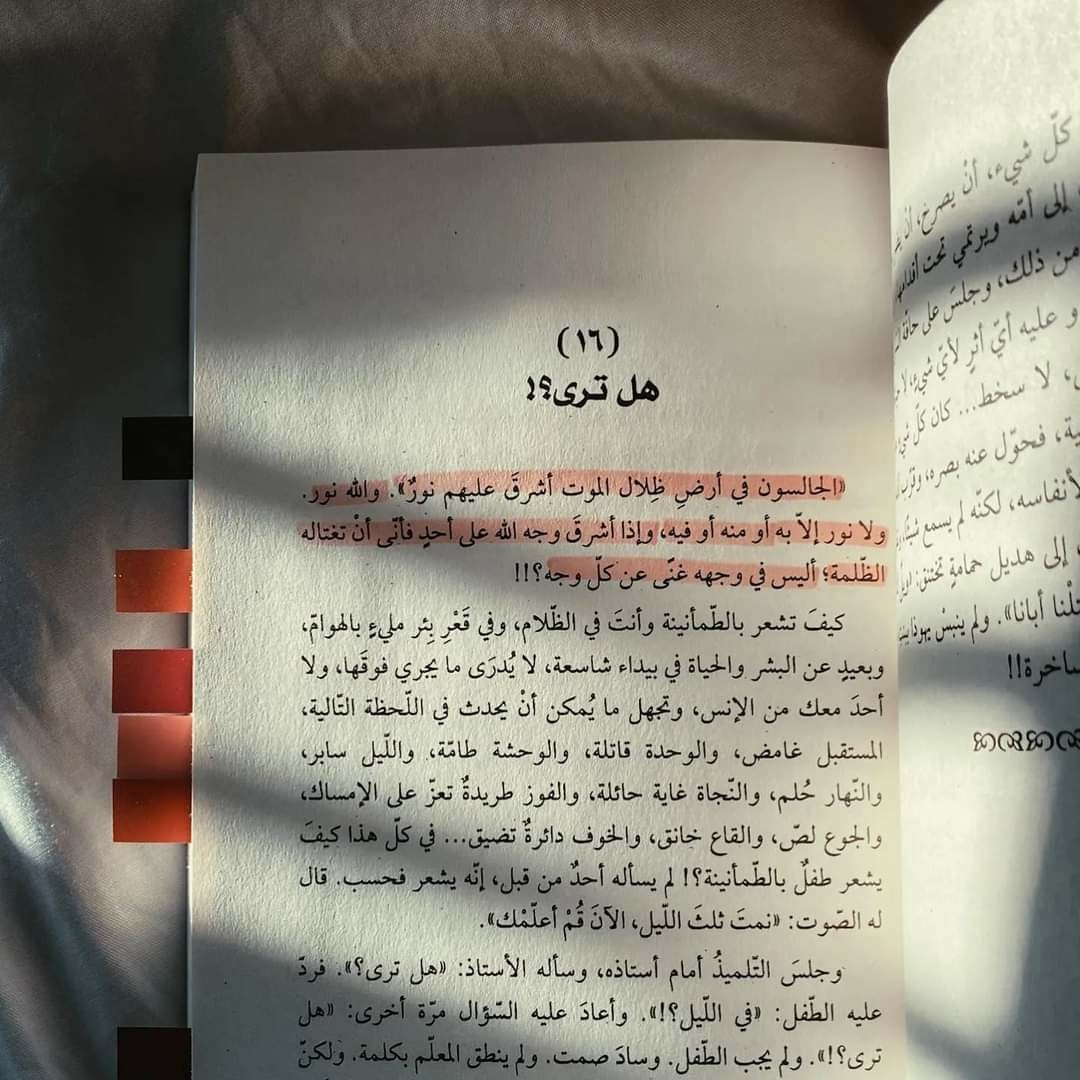 (١٦)
هل ترى؟!
«الجالسون في أرضِ ظِلال الموت أشرقَ عليهم نورٌ». والله نور.
ولا نور إلاّ به أو منه أو فيه، وإذا أشرقَ وجه الله على أحدٍ فأنّى أنْ تغتاله
الظّلمة؛ أليس في وجهه غنًى عن كلّ وجه؟!!
كيفَ تشعر بالطّمأنينة وأنتَ في الظّلام، وفي قَعْرِ بِئر مليءٍ بالهوامّ،
وبعيدٍ عن البشر والحياة في بيداء شاسعة، لا يُدرَى ما يجري فوقَها، ولا
أحدَ معك من الإنس، وتجهل ما يُمكن أنْ يحدث في اللّحظة التّالية،
المستقبل غامض، والوحدة قاتلة، والوحشة طامّة، واللّيل سابر،
والنّهار حُلم، والنّجاة غاية حائلة، والفوز طريدةٌ تعزّ على الإمساك،
والجوع لصّ، والقاع خانق، والخوف دائرةٌ تضيق... في كلّ هذا كيفَ
يشعر طفلٌ بالطّمأنينة؟! لم يسأله أحدٌ من قبل، إنّه يشعر فحسب. قال
له الصّوت: «نمتَ ثلثَ اللّيل، الآنَ قُمْ أعلّمْك».
وجلسَ التّلميذُ أمام أستاذه، وسأله الأستاذ: «هل ترى؟». فردّ
عليه الطّفل: «في اللّيل؟!». وأعادَ عليه السّؤال مرّة أخرى: «هل
ترى؟!». ولم يجب الطّفل. وسادَ صمت. ولم ينطق المعلّم بكلمة. ولكنّ
كلّ شيء، أنْ يصرخ، أن
إلى أمّه ويرتمي تحت أقدامها
من ذلك، وجلسَ على حافّة
و عليه أيّ أثرٍ لأيّ شيء، لا
لا سخط... كان كلّ
فحوّل عنه بصره،
لأنفاسه، لكنّه لم يسمع شيئًا،
إلى هديل حمامةٍ تختنق:
أبانا». ولم ينبسْ يهوذا
ساخرة!!